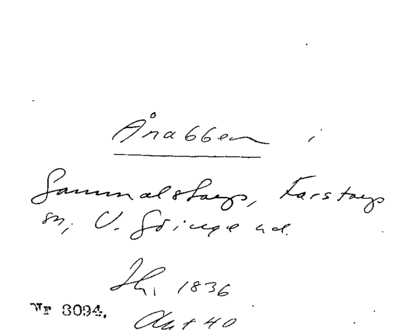 Årabben i
Gammalstorp, Färstorps
sn, V. Göinge hd.
Th. 1836
Nr 8094. Aut 40